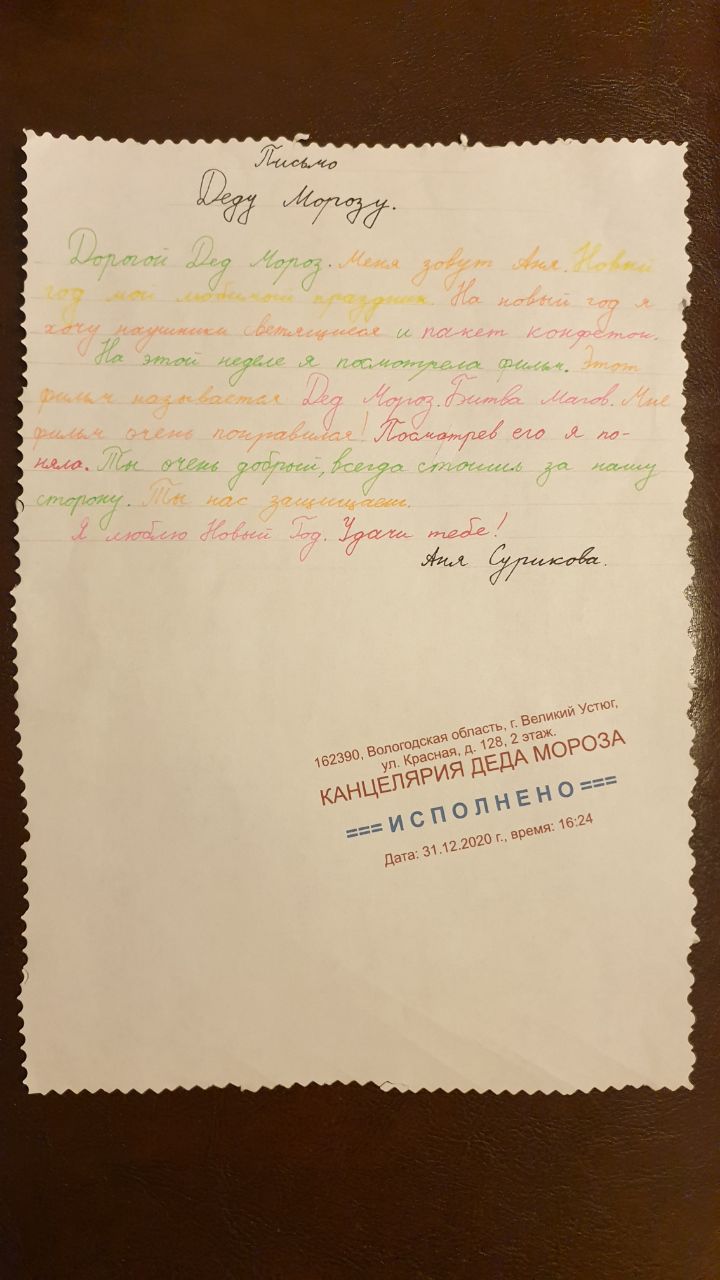 Письмо
Деду Морозу.
Дорогой Дед Мороз. Меня зовут Аня. Новый
год мой любимый праздник. На новый год я
хочу наушники светящиеся и пакет конфетои.
На этой неделе я посмотрела фильм. Этот
фильм называется Дед Мороз. Битва Магов. Мне
фильм очень понравился! Посмотрев его я по-
няла. Ты очень добрый, всегда стоишь за нашу
сторону. Ты нас защищаеш.
Я люблю Новый Год. Удачи тебе!
Аня Сурикова.
162390, Вологодская область, г. Великий Устюг,
ул. Красная, д. 128, 2 этаж.
КАНЦЕЛЯРИЯ ДЕДА МОРОЗА
===ИСПОЛНЕНО===
Дата: 31.12.2020 г., время: 16:24